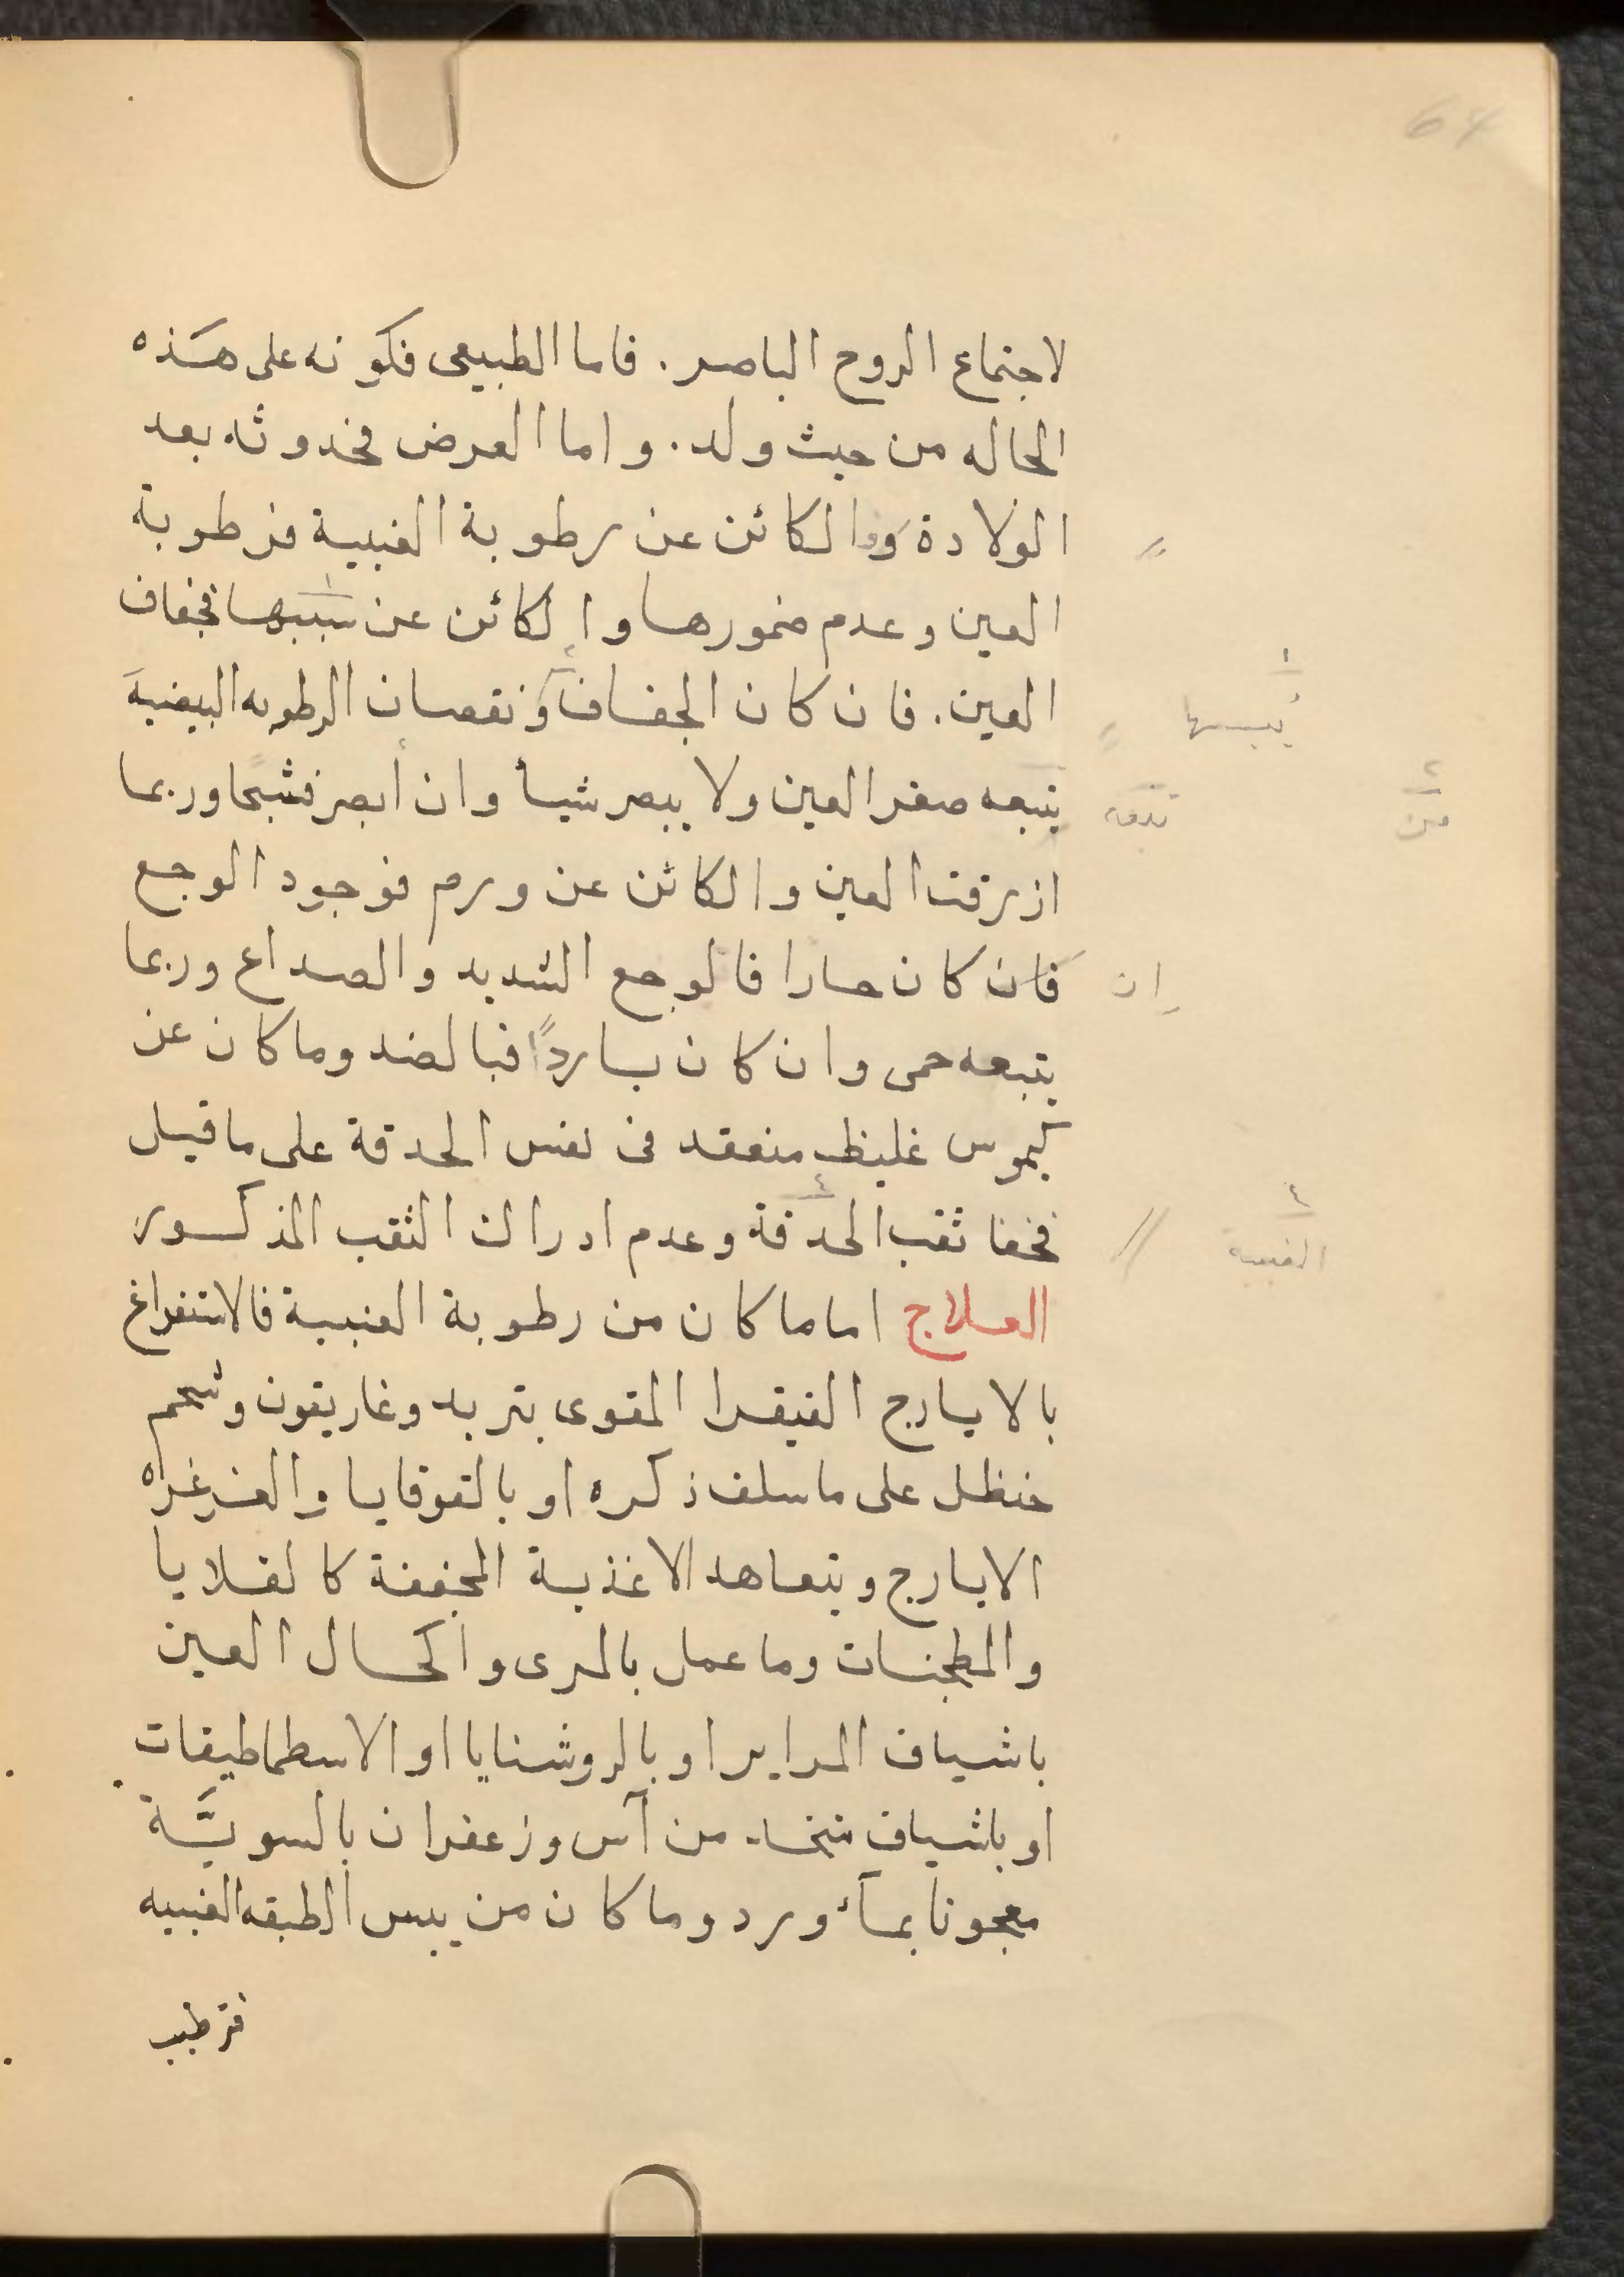 64
لاجتماع الروح الباصر . فاما الطبيعى فكونه على هذه
الحاله من حيث ولد . واما العرض فحدوثه بعد
الولادة والكائن عن رطوبة العنبية فرطوبة
العين وعدم ضمورها والكائن عن سببها فجفاف
العين . فان كان الجفاف ونقصان الرطوبه البيضية
يتبعه صغر العين ولا يبصر شيأ وان أبصر فشبحا وربما
ازرقت العين والكائن عن ورم فوجود الوجع
فان كان حارا فالوجع الشديد والصداع وربما
يتبعه حمى وان كان باردًا فبالضد وما كان عن
كيموس غليظ منعقد فى نفس الحدقة على ما قيل
فخفا ثقب الحدقة وعدم ادراك الثقب المذكور
العلاج اما ما كان من رطوبة العنبية فالاستفراغ
بالايارج الفيقرا المقوى بتربد وغاريقون وشحم
حنظل على ما سلف ذكره او بالقوقايا والغرغره
الايارج ويتعاهد الاغذية المجففة كالقلايا
والمطجنات وما عمل بالمرى واكحال العين
باشياف المراير او بالروشنايا او الاسطماطيقات
او باشياف متخذ من آس وزعفران بالسويَّة
معجونا بمآء ورد وما كان من يبس الطبقه العنبيه
فترطيب
١
يبسها
٢
من
تتبعه
ان
٤
العنبية